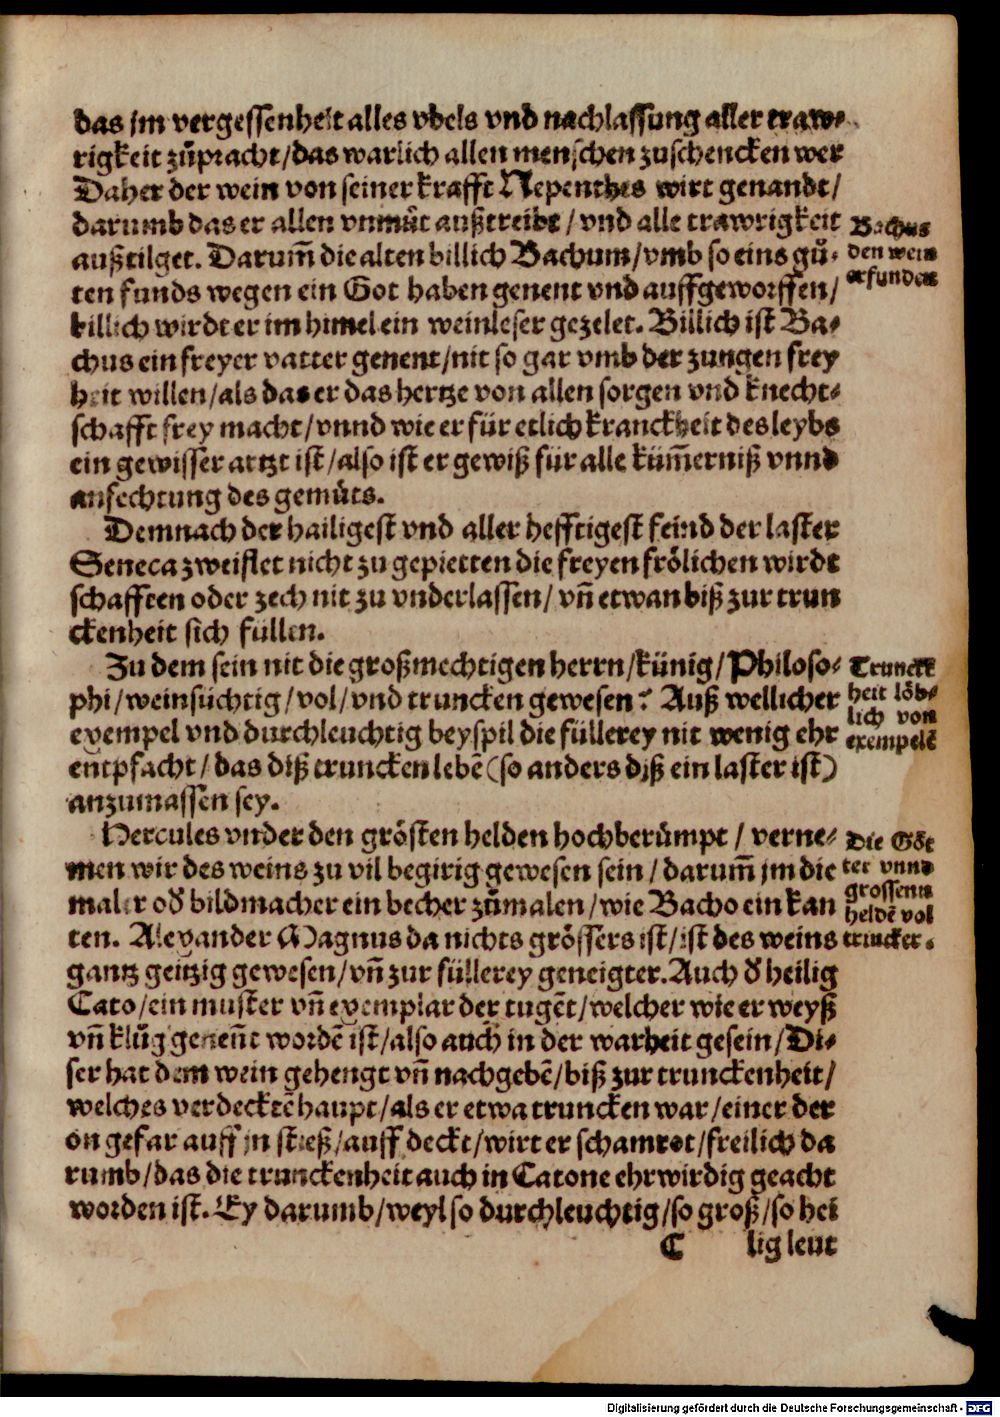 das jm vergessenheit alles vbels vnd nachlassung aller traw⸗
rigkeit zůpracht/das warlich allen menschen zuschencken wer
Daher der wein von seiner krafft Nepenthes wirt genandt/
darumb das er allen vnmůt außtreibt/vnd alle trawrigkeit
außtilget. Darum̃ die alten billich Bachum/vmb so eins gů⸗
ten funds wegen ein Got haben genent vnd auffgeworffen/
billich wirdt er im himel ein weinleser gezelet. Billich ist Ba⸗
chus ein freyer vatter genent/nit so gar vmb der zungen frey
heit willen/als das er das hertze von allen sorgen vnd knecht⸗
schafft frey macht/vnnd wie er für etlich kranckheit des leybs
ein gewisser artzt ist/also ist er gewiß für alle küm̃erniß vnnd
anfechtung des gemůts.
Bachus
den wein
erfunden
Demnach der hailigest vnd aller hefftigest feind der laster
Seneca zweiflet nicht zu gepietten die freyen frölichen wirdt
schafften oder zech nit zu vnderlassen/ vñ etwan biß zur trun
ckenheit sich füllen.
Zu dem sein nit die großmechtigen herrn/künig/Philoso⸗
phi/weinsüchtig/vol/vnd truncken gewesen? Auß wellicher
exempel vnd durchleuchtig beyspil die füllerey nit wenig ehr
entpfacht/das diß truncken lebẽ (so anders diß ein laster ist)
anzumassen sey.
Trunck⸗
heit löb⸗
lich von
exempelẽ
Hercules vnder den grösten helden hochberümpt/verne⸗
men wir des weins zu vil begirig gewesen sein/darum̃ jm die
maler oď bildmacher ein becher zůmalen/wie Bacho ein kan
ten. Alexander Magnus da nichts grössers ist/ist des weins
gantz geitzig gewesen/vñ zur füllerey geneigter. Auch ď heilig
Cato/ein muster vñ exemplar der tugẽt/welcher wie er weyß
vñ klůg geneñt wordẽ ist/also auch in der warheit gesein/Di⸗
ser hat dem wein gehengt vñ nachgebẽ/biß zur trunckenheit/
welches verdecktẽ haupt/als er etwa truncken war/einer der
on gefar auff jn stieß/auff deckt/wirt er schamrot/freilich da
rumb/das die trunckenheit auch in Catone ehrwirdig geacht
worden ist. Ey darumb/weyl so durchleuchtig/so groß/so hei
Die Göt
ter vnnd
grossenn
heldẽ vol
truncker.
C lig leut
Digitalisierung gefördert durch die Deutsche Forschungsgemeinschaft - DFG